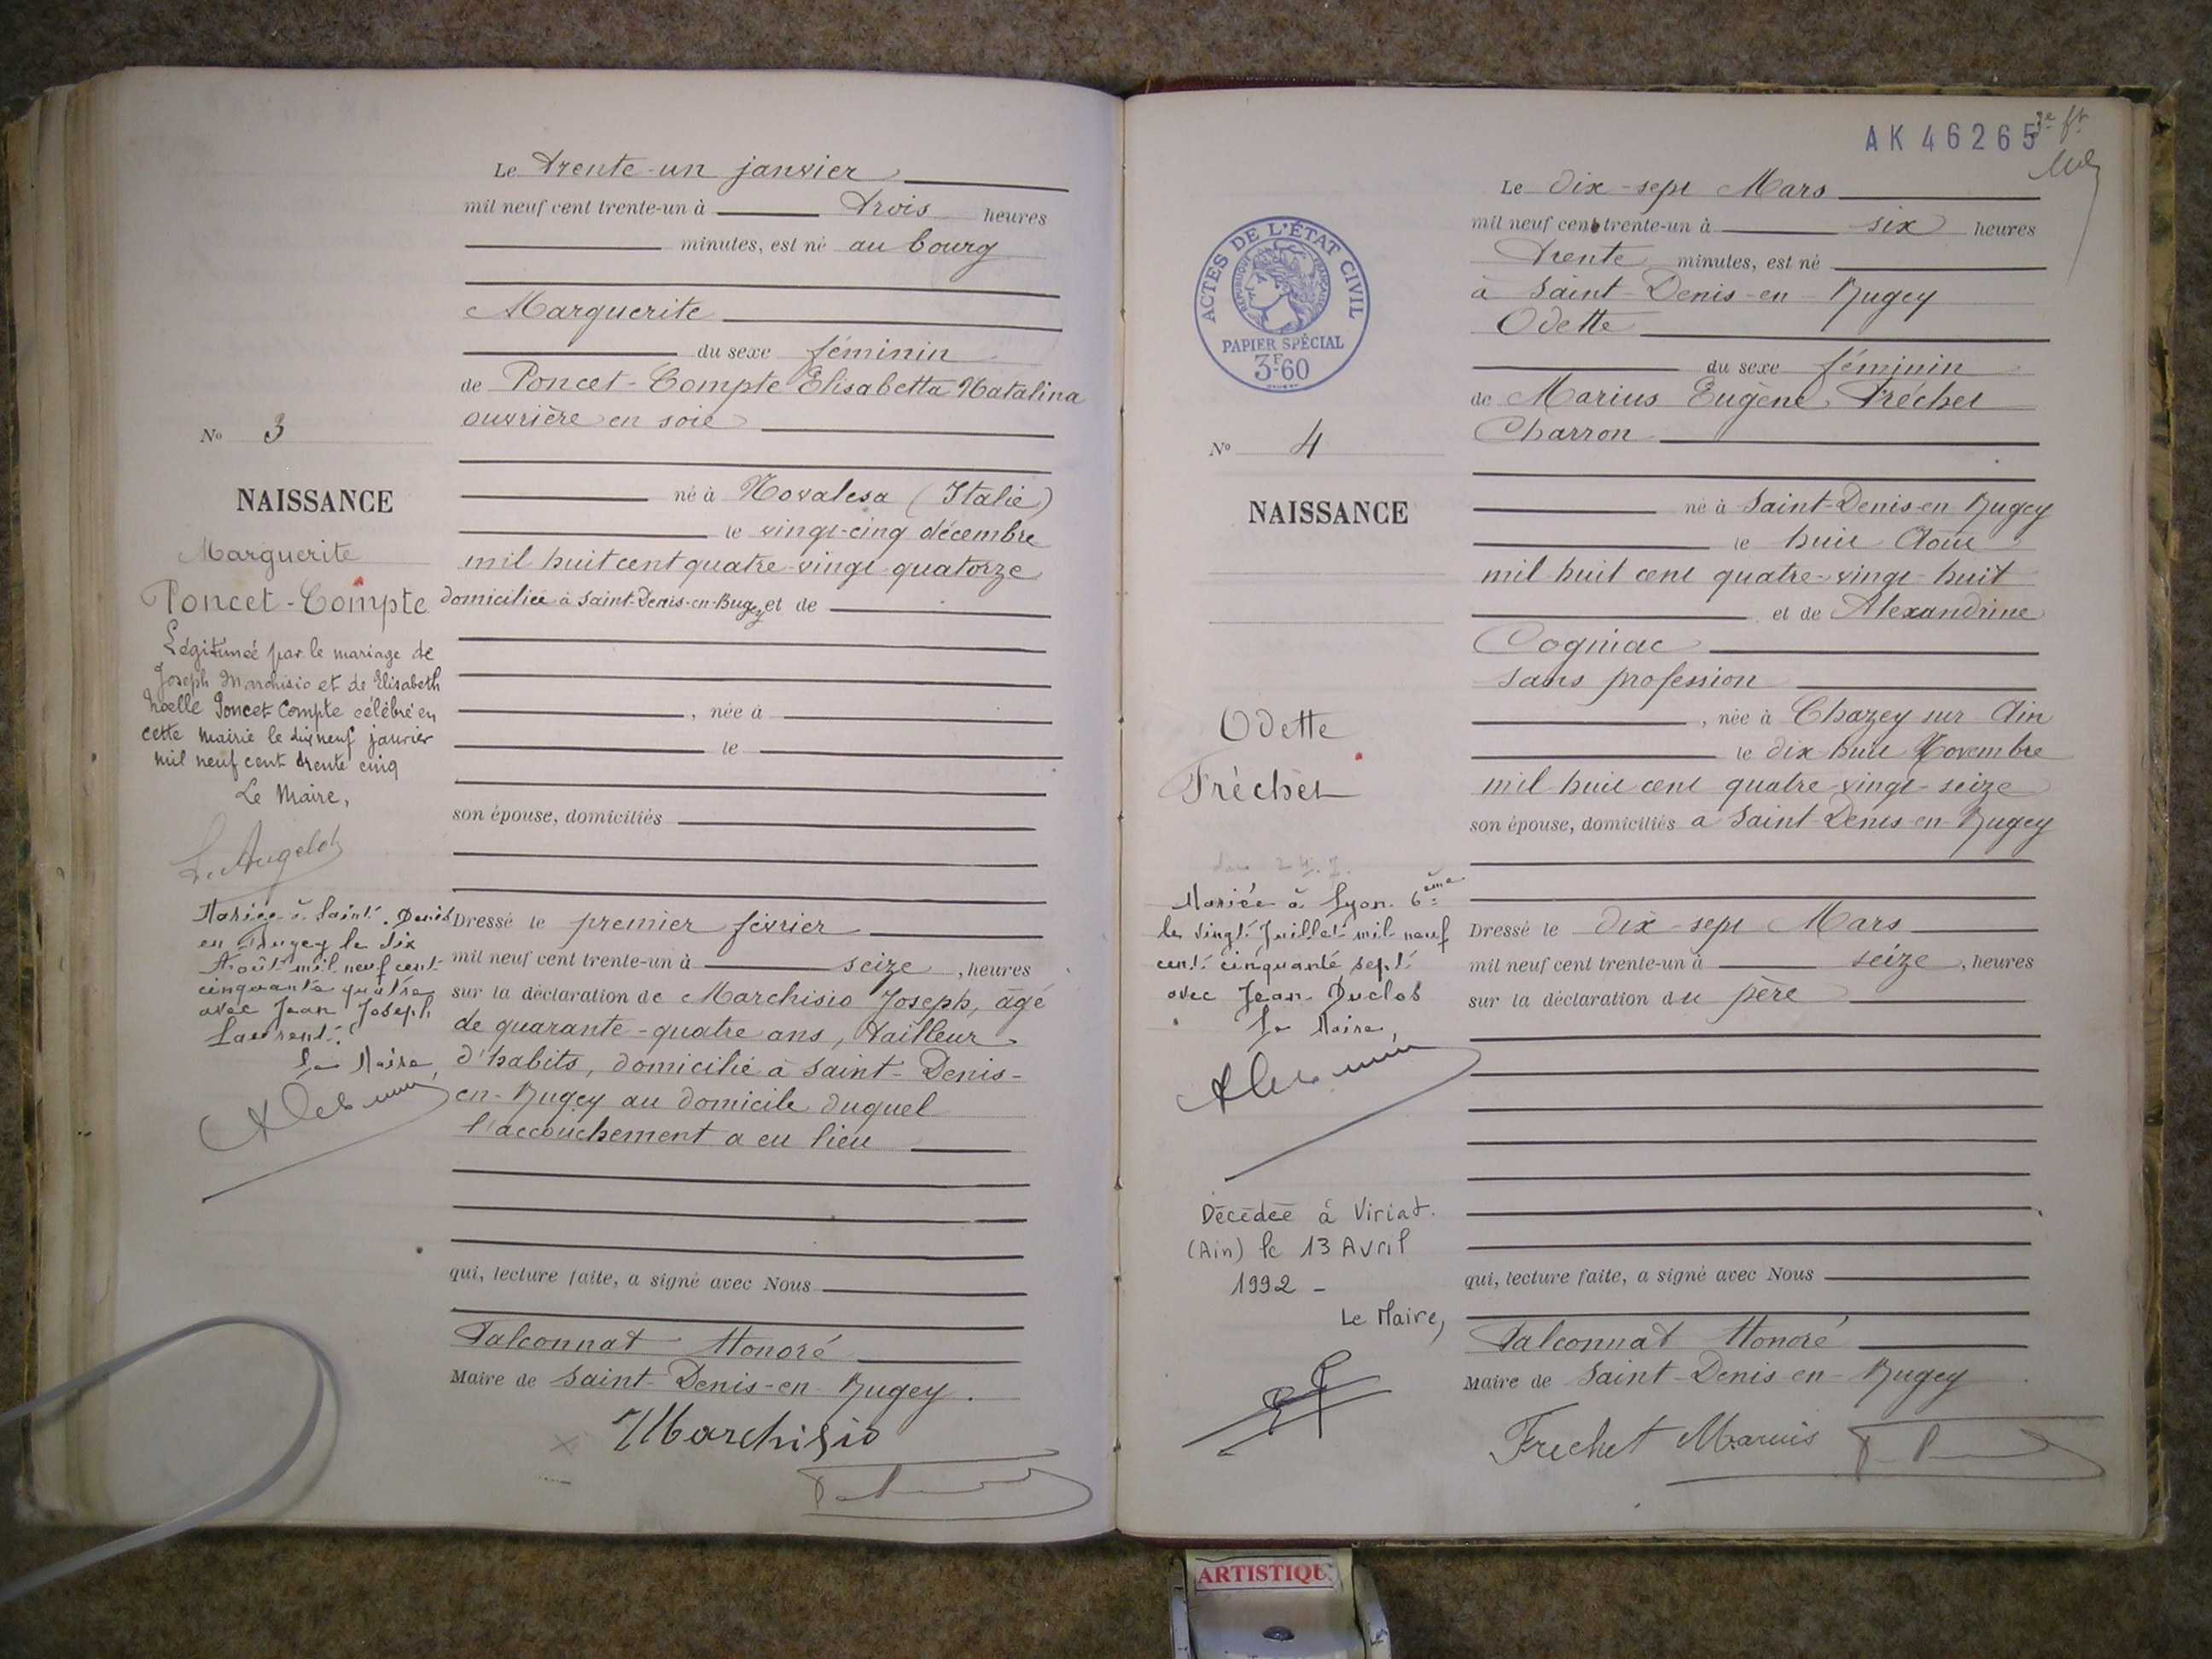 Le trente-un janvier
mil neuf cent trente-un à trois heures
minutes, est né au bourg
Marguerite
du sexe féminin
de Poncet-Compte Elisabetta Natalina
ouvrière en soie
né à Novalesa (Italie)
le vingt-cinq décembre
mil huit cent quatre-vingt quatorze
domiciliée à Saint-Denis-en-Bugey et de
, née à
le
son épouse, domiciliés
Dressé le premier février
mil neuf cent trente-un à seize, heures
sur la déclaration de Marchisio Joseph, âgé
de quarante-quatre ans, tailleur
d'habits, domicilié à Saint-Denis-
en-Bugey au domicile duquel
l'accouchement a eu lieu
qui, lecture faite, a signé avec Nous
Falconnat Honoré
Maire de Saint-Denis-en-Bugey.
Marchisio
No 3
NAISSANCE
Marguerite
Poncet-Compte
Légitimée par le mariage de
Joseph Marchisio et de Elisabeth
Noelle Poncet-Compte célébré en
cette mairie le dix neuf janvier
mil neuf cent trente cinq
Le Maire,
L. Augelot
Mariée à Saint-Denis
en Bugey le dix
Août mil neuf cent
cinquante quatre
avec Jean Joseph
Laurent.
Le Maire,
AK 46265
Le dix-sept Mars
mil neuf cent trente-un à six heures
trente minutes, est né
à Saint-Denis-en-Bugey
Odette
du sexe féminin
de Marius Eugène Fréchet
Charron
né à Saint-Denis-en Bugey
le huit Aout
mil huit cent quatre-vingt-huit
et de Alexandrine
Cogniac
sans profession
, née à Chazey sur Ain
le dix-huit Novembre
mil huit cent quatre-vingt-seize
son épouse, domiciliés à Saint-Denis-en-Bugey
Dressé le dix-sept Mars
mil neuf cent trente-un à seize, heures
sur la déclaration du père
qui, lecture faite, a signé avec Nous
Falconnat Honoré
Maire de Saint-Denis-en-Bugey
Frechet Marius
ACTES DE L'ÉTAT CIVIL
RÉPUBLIQUE FRANÇAISE
PAPIER SPÉCIAL
3F60
No 4
NAISSANCE
Odette
Fréchet
Mariée à Lyon 6ème
le vingt Juillet mil neuf
cent cinquante sept
avec Jean Duclos
Le Maire,
Décédée à Viriat.
(Ain) le 13 Avril
1992 -
Le Maire,
ARTISTIQU